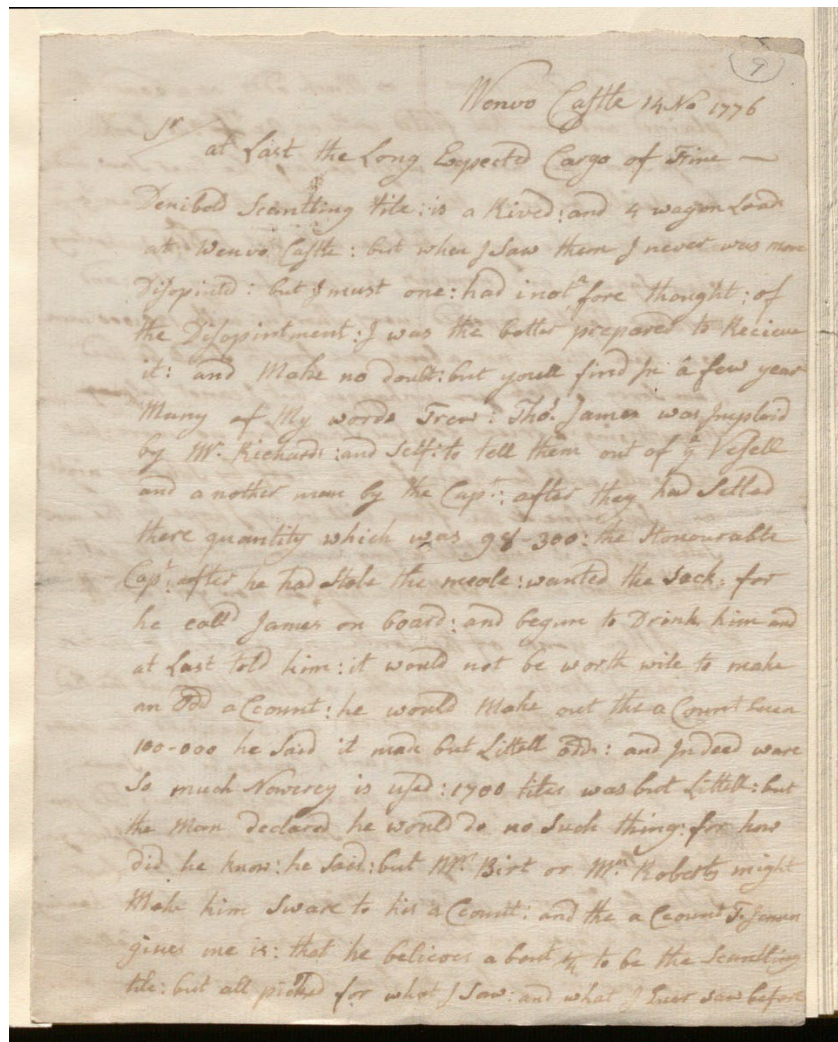 9
Wenvo Castle 14 No 1776
Sr
at Last the Long Expected Cargo of Fine —
Denibold Scantling tile: is a Rived: and 4 wagon Load
at Wenvo Castle: but when I Saw them I never was more
Disopintd: but I must one: had inot a fore thought: of
the Disopintment: I was the better prepared to Recieve
it: and Make no doubt: but youll find in a few year
Many of My words Trew: Thos. James was Imploid
by Mr. Richards: and Self: to tell them out of ye Vesell
and another man by the Capt: after they had Setled
there quantity which was 98-300: the Honourable
Capt: after he had Stole the meale: wanted the Sack: for
he calld James on board: and begun to Drink him and
at Last told him: it would not be worth wile to make
an Odd account: he would Make out the a Count Even
100-000 he Said it made but Littell Odds: and Indeed ware
So much is used: 1700 tiles was but Littell: but
the Man declared he would do no Such thing: for how
did he know: he Said: but Mr. Birt or Mr. Roberts might
Make him Sware to his a Ccount: and the a Ccount
gives me is: that he believes a bout 1/4 to be the Scantling
tile: but all picked for what I Saw: and what I Ever saw before